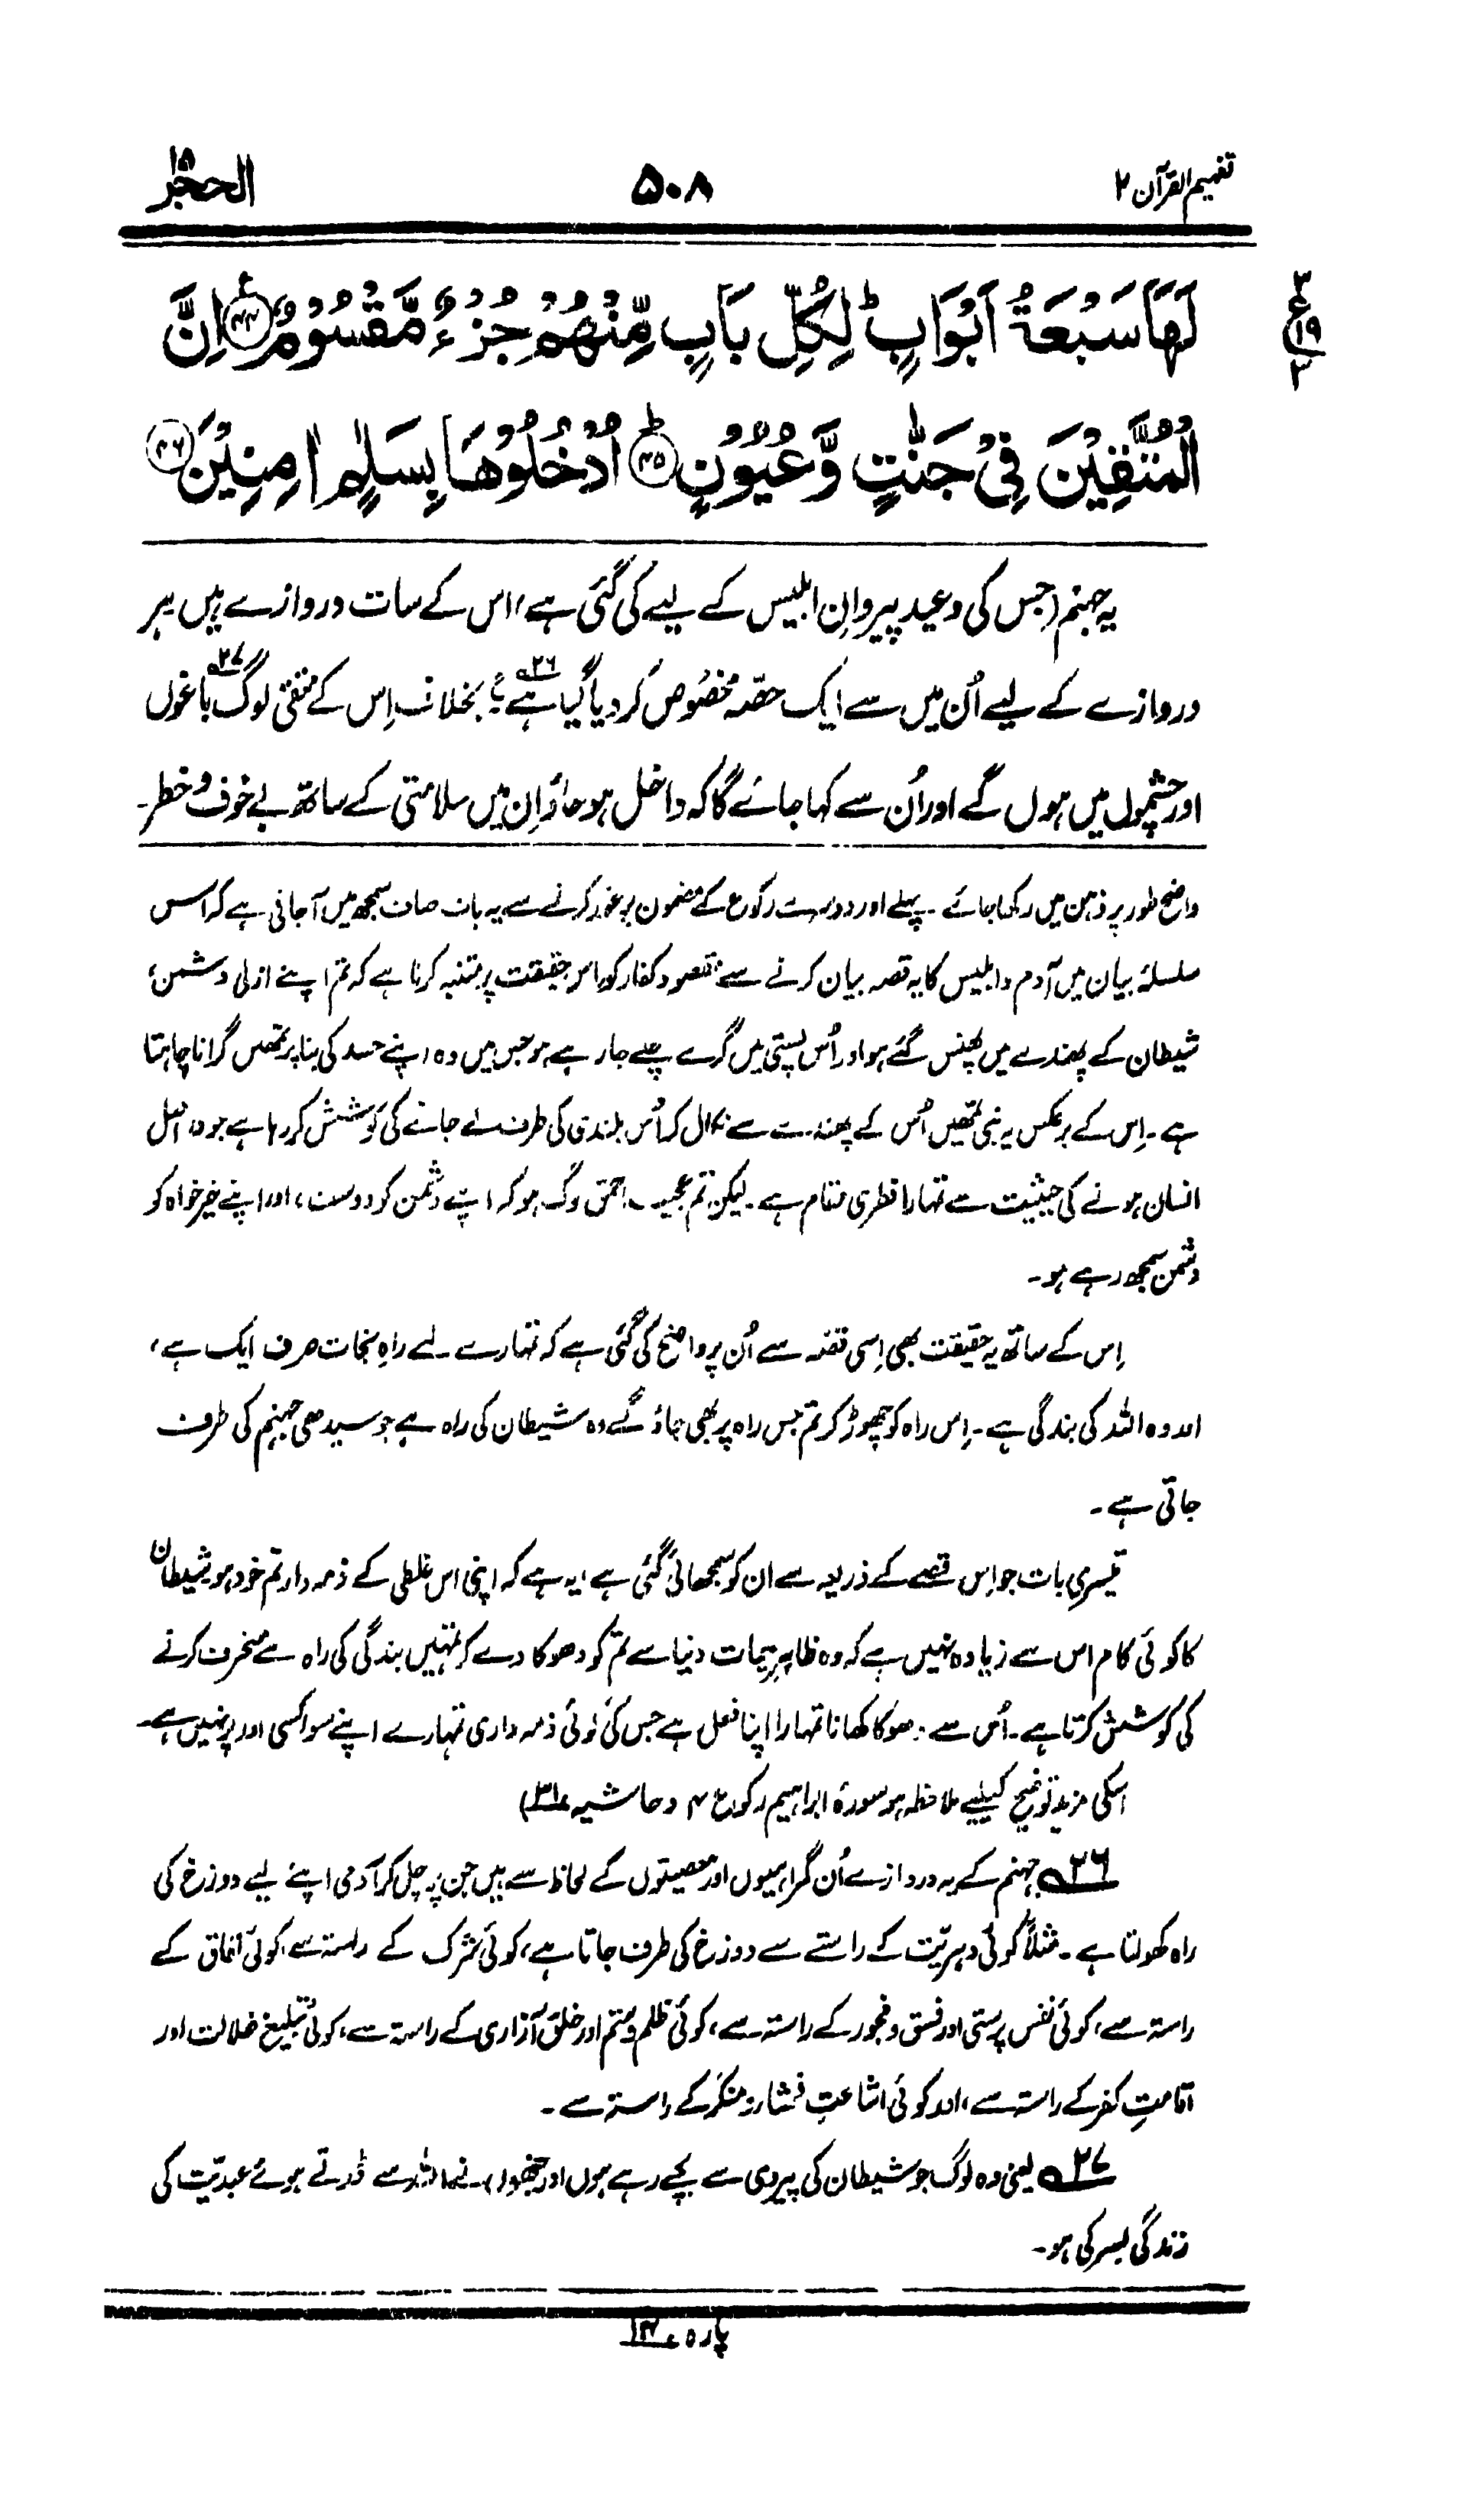 تفہیم القرآن ۲
۵۰۸
الحجر ۱۵
لَهَا سَبْعَةُ اَبْوَابٍ ؕ لِكُلِّ بَابٍ مِّنْهُمْ جُزْءٌ مَّقْسُوْمٌ ﴿۴۴﴾ اِنَّ
ع ۳ ۱۹ ۳
الْمُتَّقِیْنَ فِیْ جَنّٰتٍ وَّعُیُوْنٍ ﴿۴۵﴾ؕ اُدْخُلُوْهَا بِسَلٰمٍ اٰمِنِیْنَ ﴿۴۶﴾
یہ جہنم (جس کی وعید پیروانِ ابلیس کے لیے کی گئی ہے) اس کے سات دروازے ہیں۔ ہر
دروازے کے لیے اُن میں سے ایک حصّہ مخصُوص کر دیا گیا ہے۲۶؎۔ بخلاف اِس کے متقی لوگ۲۷؎ باغوں
اور چشموں میں ہوں گے اور اُن سے کہا جائے گا کہ داخل ہو جاؤ اِن میں سلامتی کے ساتھ بے خوف و خطر۔
واضح طور پر ذہن میں رکھا جائے۔ پہلے اور دوسرے رکوع کے مضمون پر غور کرنے سے یہ بات صاف سمجھ میں آجاتی ہے کہ اس
سلسلۂ بیان میں آدم و ابلیس کا یہ قصہ بیان کرنے سے مقصود کفار کو اس حقیقت پر متنبہ کرنا ہے کہ تم اپنے ازلی دشمن،
شیطان کے پھندے میں پھنس گئے ہو اور اُس پستی میں گرے چلے جا رہے ہو جس میں وہ اپنے حسد کی بنا پر تمھیں گرانا چاہتا
ہے۔ اِس کے برعکس یہ نبی تمھیں اُس کے پھندے سے نکال کر اُس بلندی کی طرف لے جانے کی کوشش کر رہا ہے جو دراصل
انسان ہونے کی حیثیت سے تمہارا فطری مقام ہے۔ لیکن تم عجیب احمق لوگ ہو کہ اپنے دشمن کو دوست، اور اپنے خیر خواہ کو
دشمن سمجھ رہے ہو۔
اِس کے ساتھ یہ حقیقت بھی اِسی قصّہ سے اُن پر واضح کی گئی ہے کہ تمہارے لیے راہِ نجات صرف ایک ہے،
اور وہ اللہ کی بندگی ہے۔ اِس راہ کو چھوڑ کر تم جس راہ پر بھی جاؤ گے وہ شیطان کی راہ ہے جو سیدھی جہنم کی طرف
جاتی ہے۔
تیسری بات جو اِس قصے کے ذریعہ سے ان کو سمجھائی گئی ہے، یہ ہے کہ اپنی اس غلطی کے ذمہ دار تم خود ہو۔ شیطان
کا کوئی کام اس سے زیادہ نہیں ہے کہ وہ ظاہرِ حیات دنیا سے تم کو دھوکا دے کر تمہیں بندگی کی راہ سے منحرف کرنے
کی کوشش کرتا ہے۔ اُس سے دھوکا کھانا تمہارا اپنا فعل ہے جس کی کوئی ذمہ داری تمہارے اپنے سوا کسی اور پر نہیں ہے۔
اسکی مزید توضیح کیلیے ملاحظہ ہو سورۂ ابراہیم رکوع ۴ و حاشیہ ۳۱)
۲۶؎ جہنم کے یہ دروازے اُن گمراہیوں اور معصیتوں کے لحاظ سے ہیں جن پر چل کر آدمی اپنے لیے دوزخ کی
راہ کھولتا ہے۔ مثلاً کوئی دہریّت کے راستے سے دوزخ کی طرف جاتا ہے، کوئی شرک کے راستہ سے، کوئی نفاق کے
راستہ سے، کوئی نفس پرستی اور فسق و فجور کے راستہ سے، کوئی ظلم و ستم اور خلق آزاری کے راستہ سے، کوئی تبلیغِ ضلالت اور
اقامتِ کفر کے راستہ سے، اور کوئی اشاعتِ فحشاء و منکر کے راستہ سے۔
۲۷؎ یعنی وہ لوگ جو شیطان کی پیروی سے بچے رہے ہوں اور جنھوں نے اللہ سے ڈرتے ہوئے عبدیّت کی
زندگی بسر کی ہو۔
پارہ ۱۴